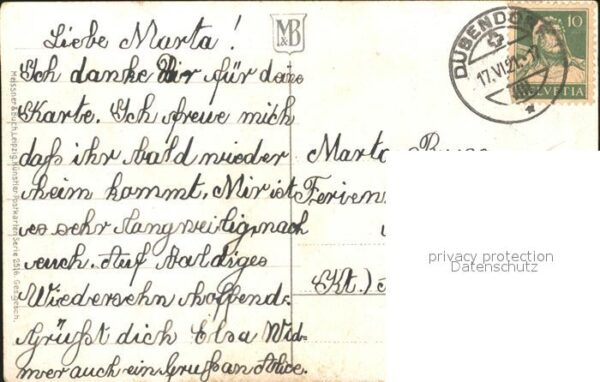 Liebe Marta!
M&B
DÜBENDORF
17.VI.21.-17
10
HELVETIA
Ich danke Dir für deine
Karte. Ich freue mich
daß ihr bald wieder
heim kommt. Mir ist
es sehr langweilig, nach
euch. Auf baldiges
Wiedersehn hoffend.
Grüßt dich Elsa Wid-
mer auch ein Gruß an Alice.
Marta
Ferien
Kt.)
Meissner & Buch, Leipzig. Künstler-Postkarten Serie 2516. Ges. gesch.
privacy protection
Datenschutz